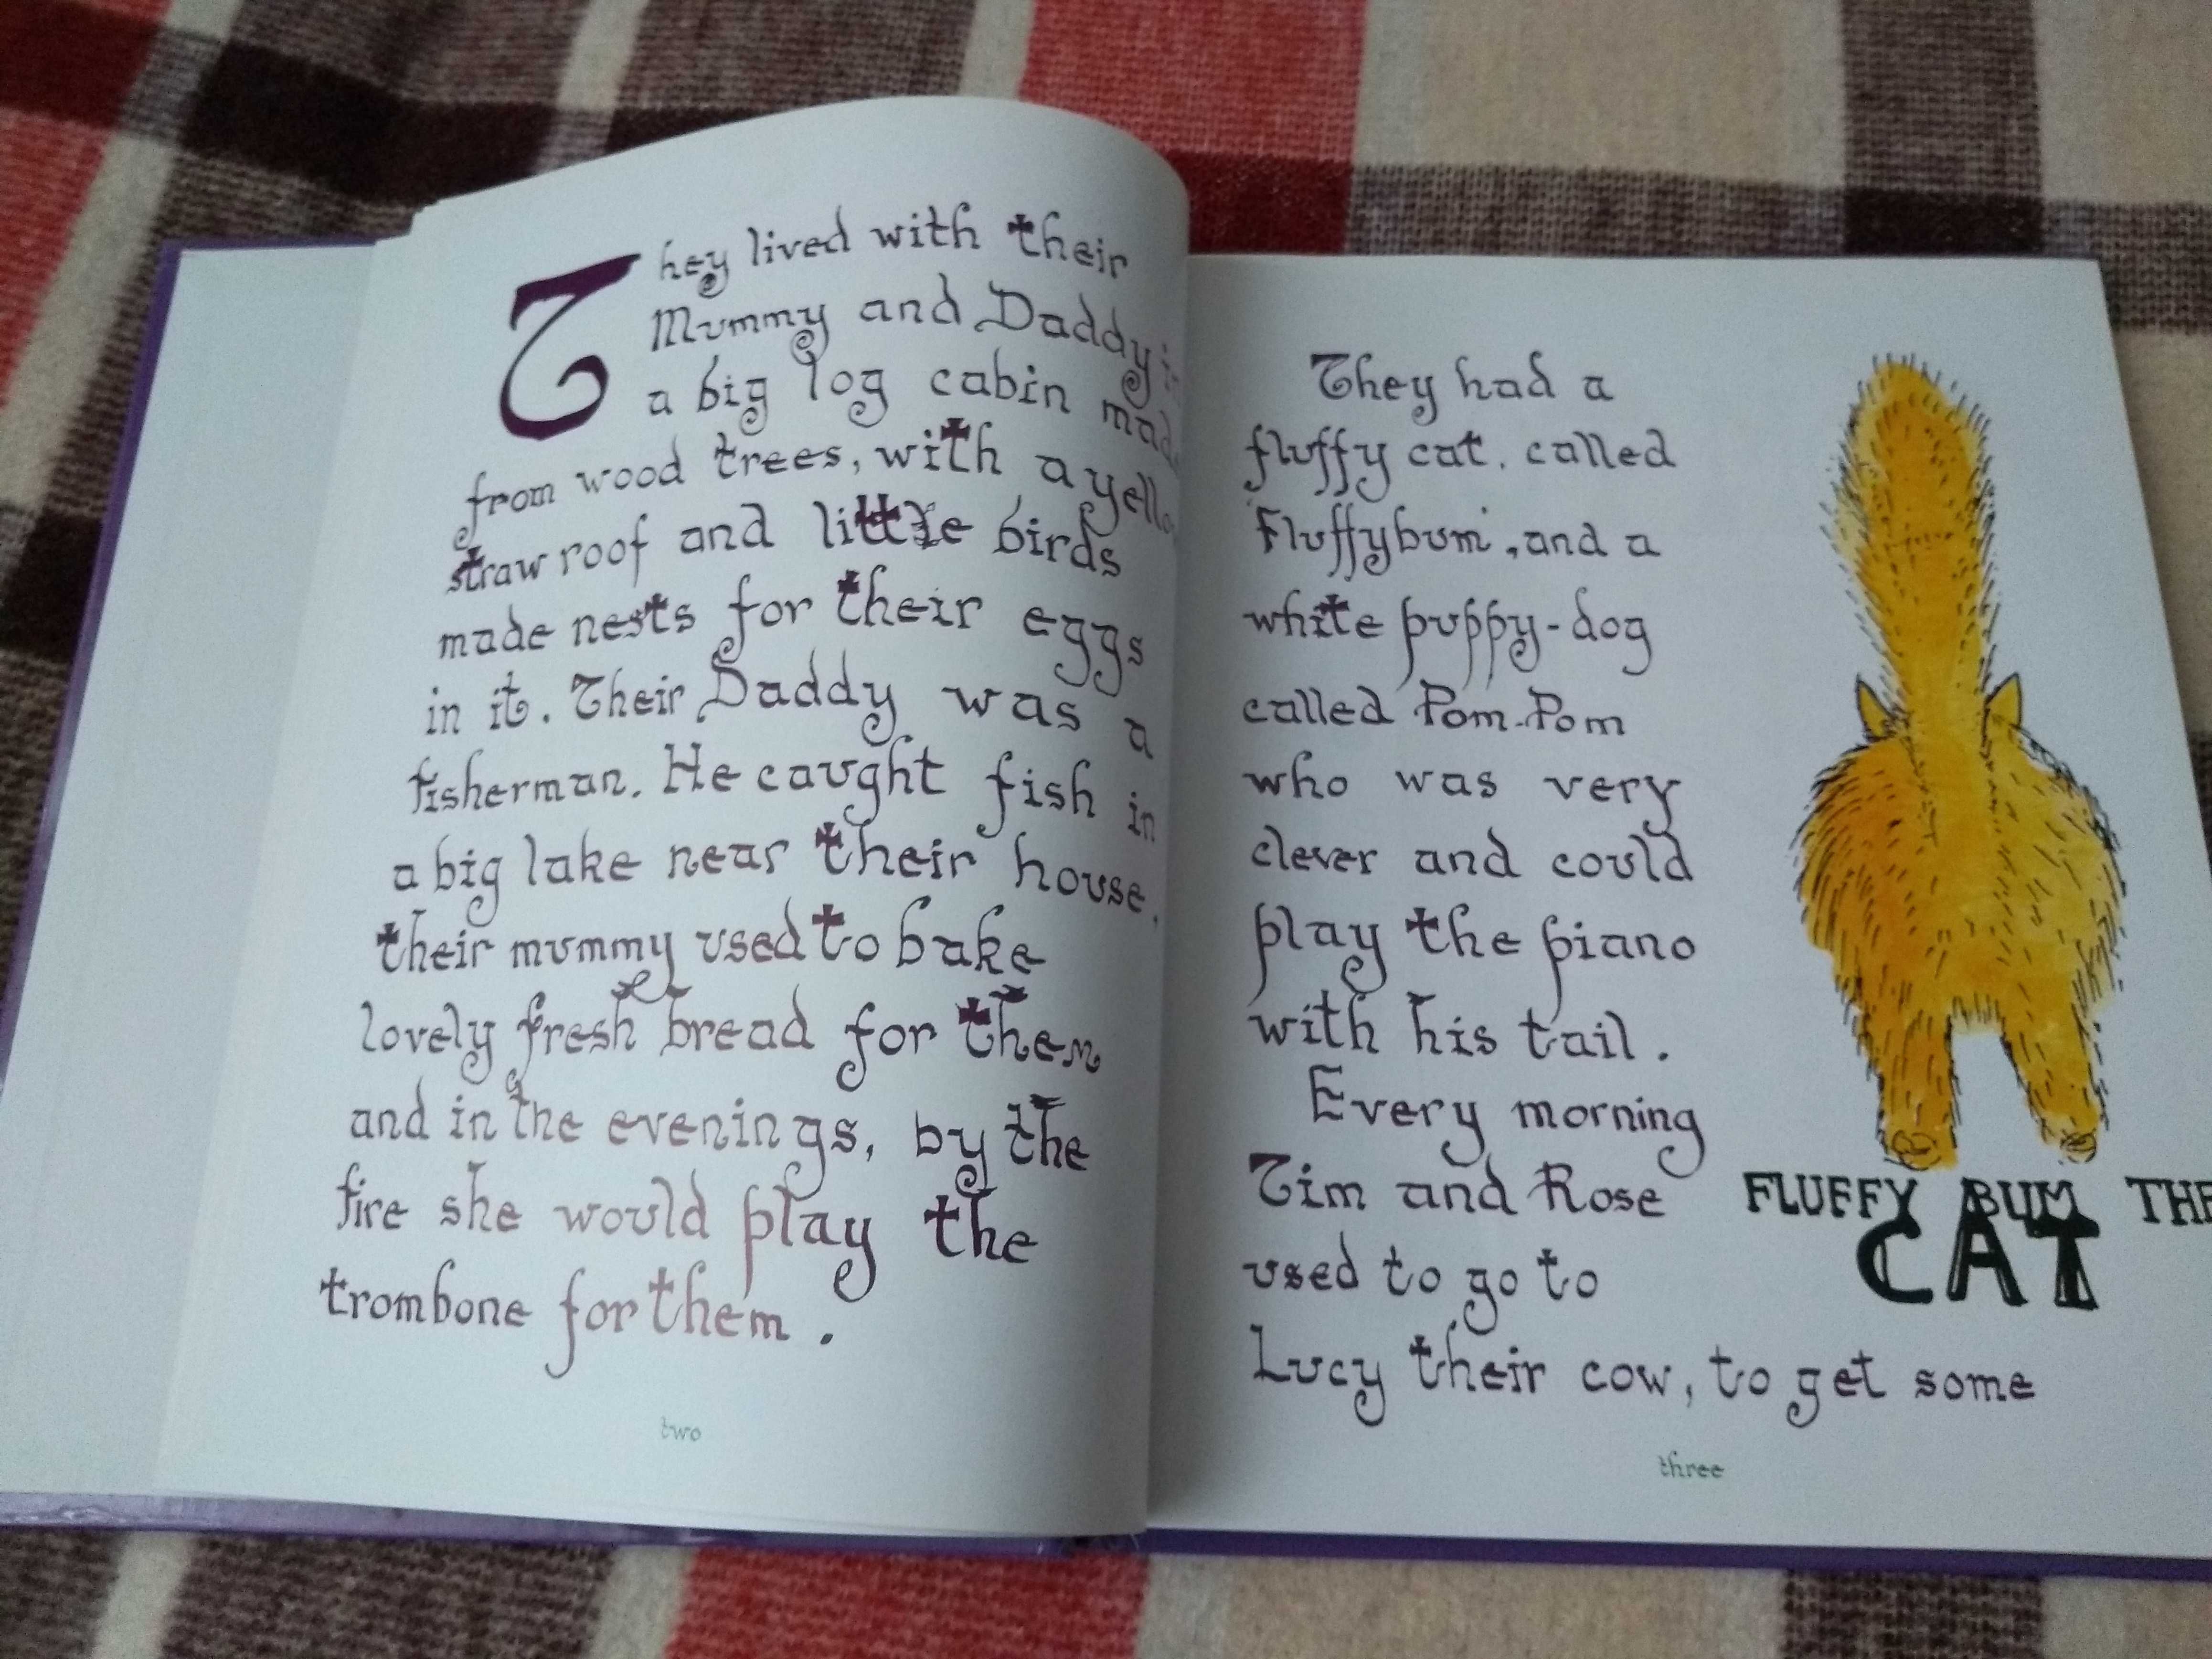 They lived with their
Mummy and Daddy
a big log cabin
from wood trees, with a
straw roof and little birds
made nests for their eggs
in it. Their Daddy was a
fisherman. He caught fish in
a big lake near their house.
their mummy used to bake
lovely fresh bread for them
and in the evenings, by the
fire she would play the
trombone for them.
two
They had a
fluffy cat. called
Fluffybum', and a
white puppy-dog
called Pom-Pom
who was very
clever and could
play the piano
with his tail.
Every morning
Tim and Rose
used to go to
Lucy their cow, to get some
FLUFFY BUM THE
CAT
three